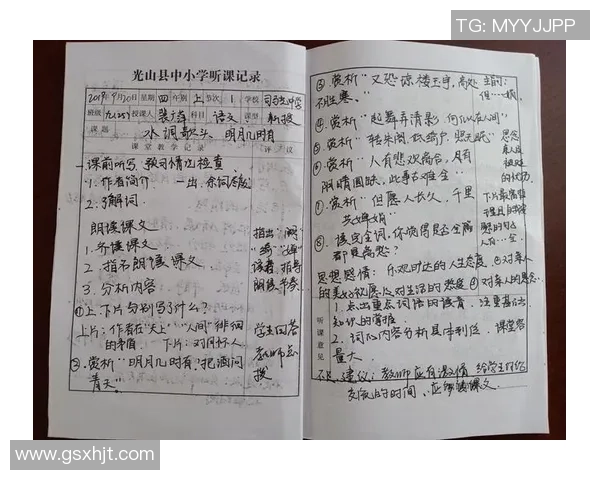 TG: MYYJJPP
光山县中小学听课记录
2019年9月20日 星期 四 年别 上 节次 1 学校 司马光中学
班级 九(25) 授课人 裴蕊 科目 语文 课型 新授
课题 水调歌头·明月几时有
课堂教学记录 评议
一课前听写、预习情况检查
1.作者简介
2.了解词
朗读课文
1.齐读课文
2.指名朗读课文
3.分析内容
①上、下片分别写了什么?
上片:作者在"天上""人间"徘徊
的矛盾 下片:对月怀人
②.赏析"明月几时有,把酒问
青天"
指出
读音,指导
朗读节奏
学生回答
教师点
拨
③.赏析"又恐琼楼玉宇,高处
不胜寒。"
④.赏析"起舞弄清影,何似在人间"
⑤.赏析"转朱阁,低绮户,照无眠"
⑥.赏析"人有悲欢离合,月有
阴晴圆缺,此事古难全"
⑦.赏析"但愿人长久,千里
共婵娟"
⑧.读完全词,你觉得是否全篇
都是离愁?
思想感情: 乐观旷达的人生态度 ②对亲人
听课意见
1.点出重点词语的读音,注重基础
知识的掌握
2.词的内容分析具体到位,课堂容
量大。
不足、建议:教师应有激情,给学生
交流的时间、应
www.gsxhjt.com